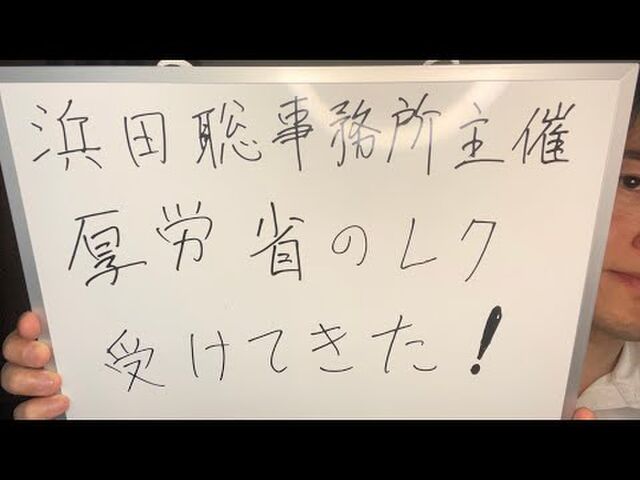 浜田聡事務所主催
厚労省のレク
受けてきた!